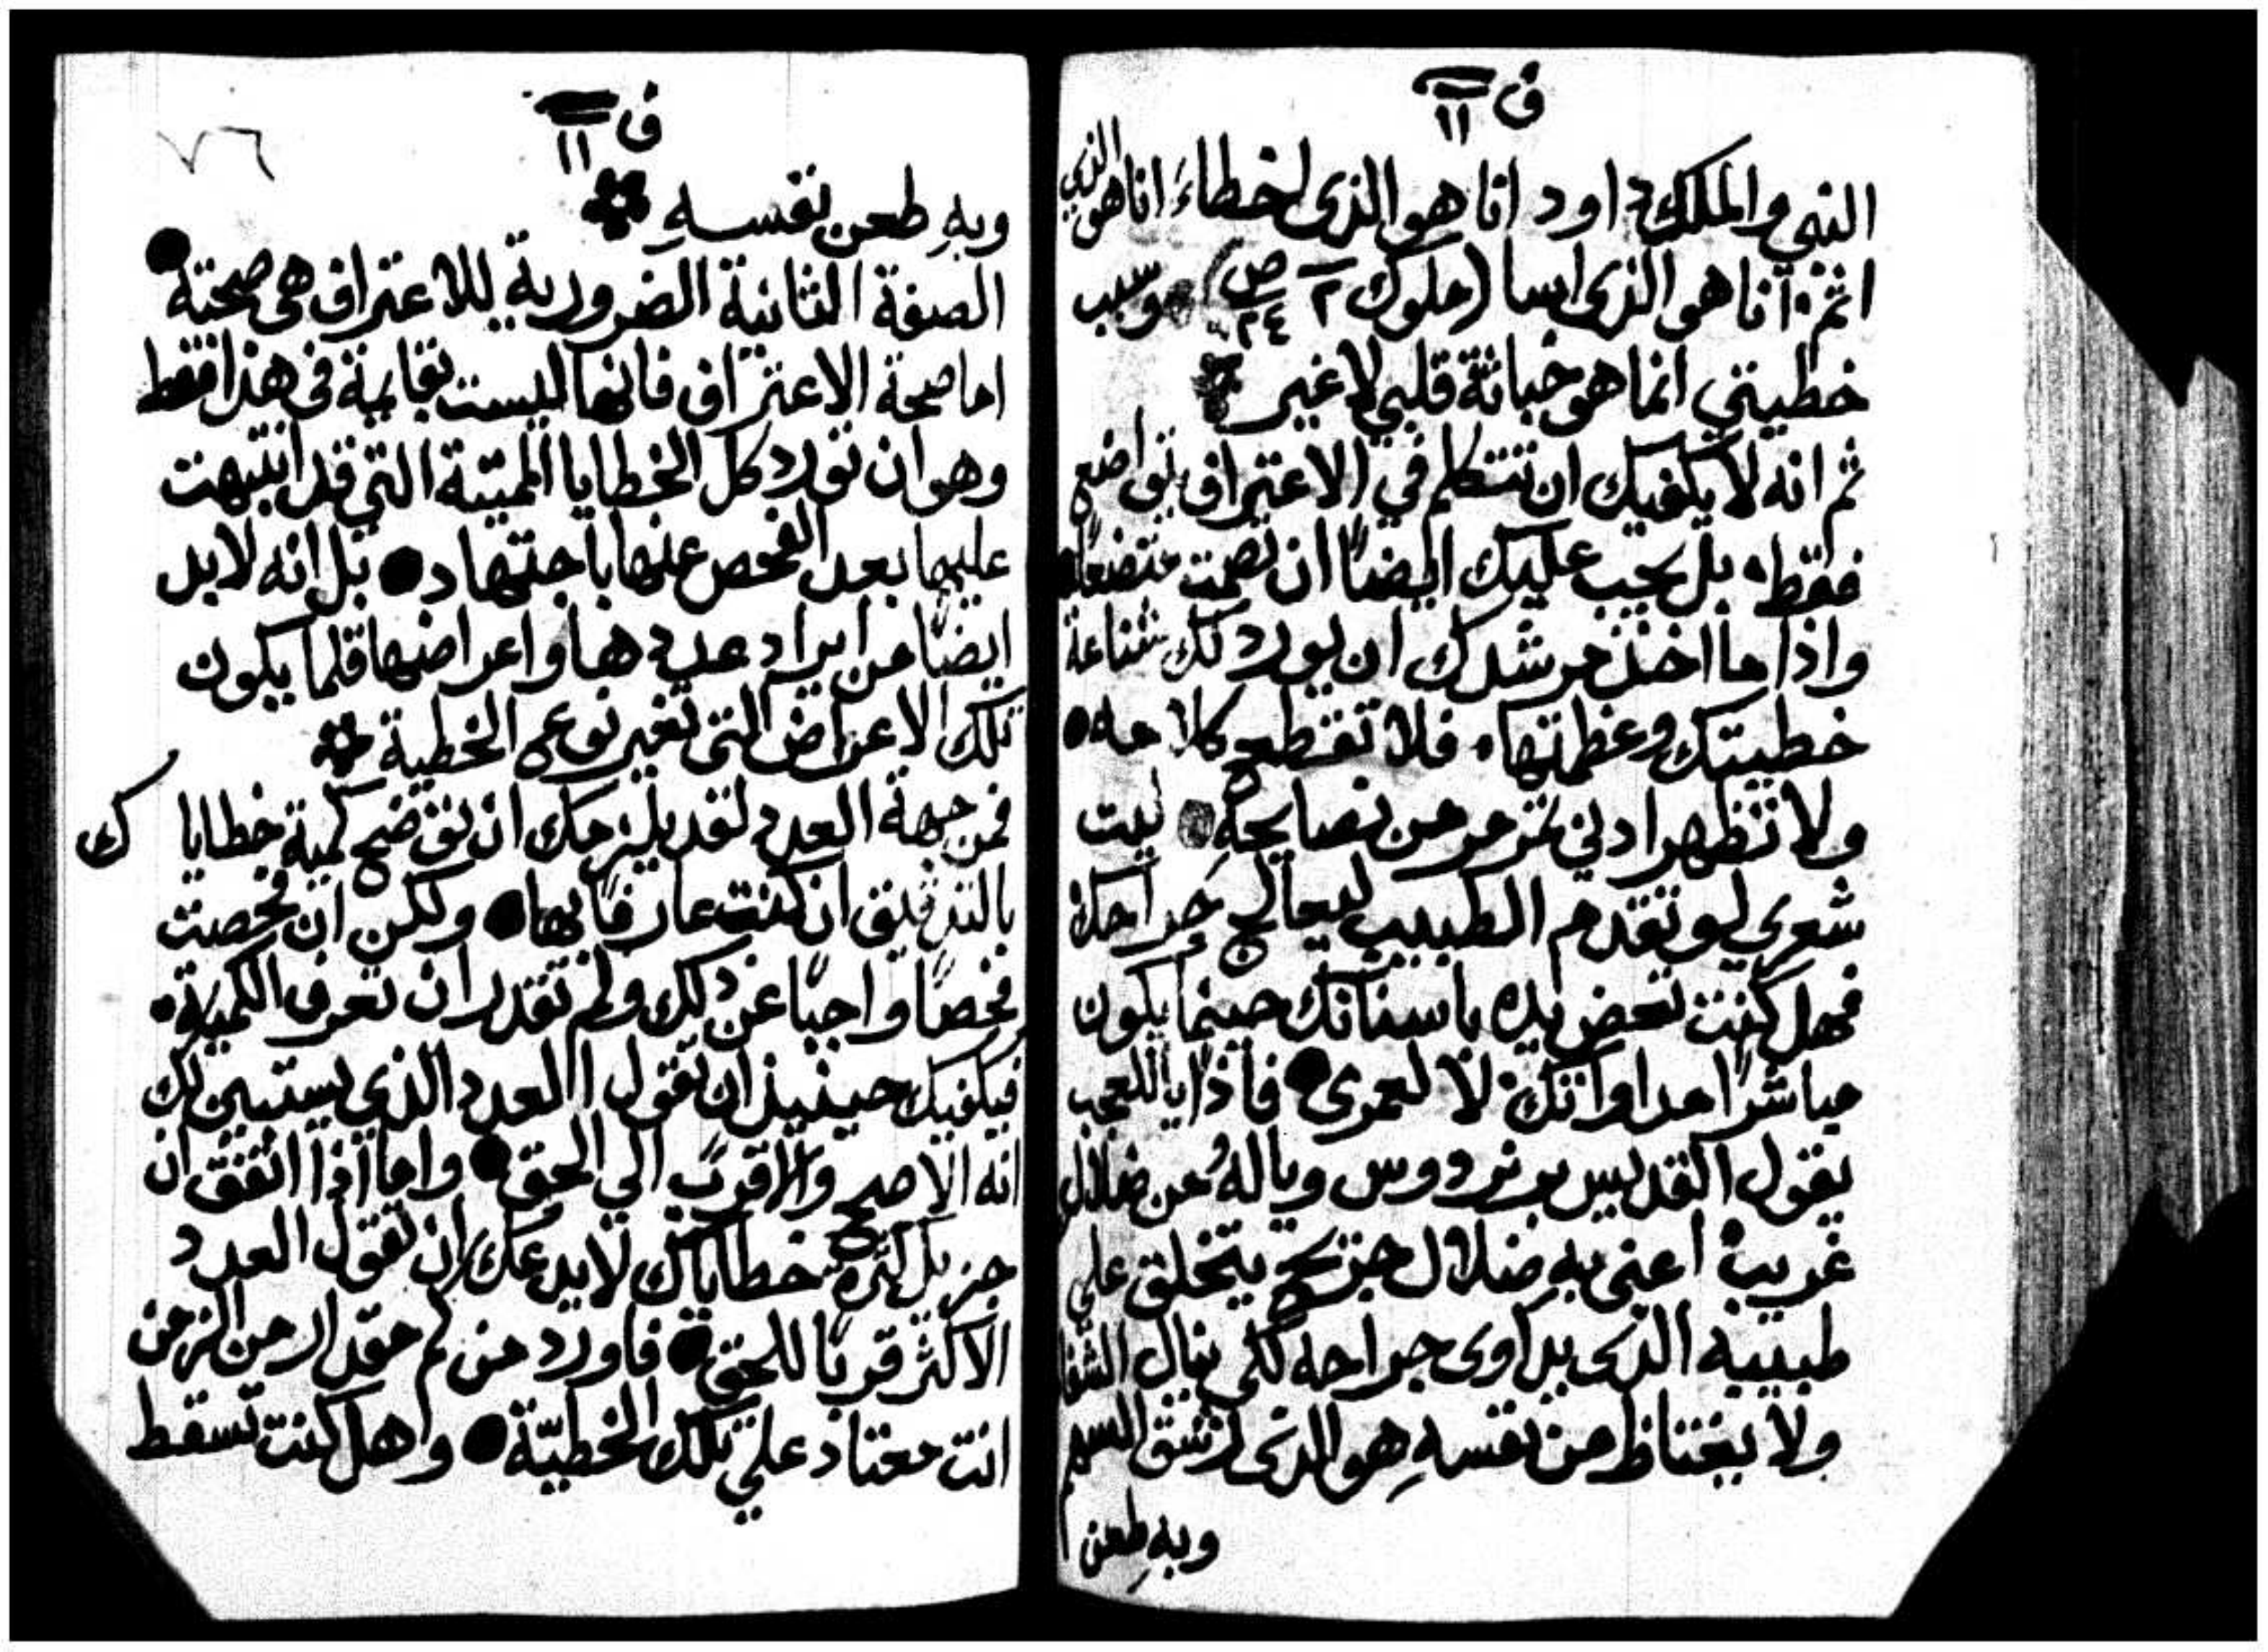 ف ١١
النبي والملك داود انا هو الذى اخطاء انا هو الذي
اثم انا هو الذى اسا (ملوك ٢ ص ٢٤) وسبب
خطيتي انما هو خباثة قلبي لا غير
ثم انه لا يكفيك ان تتكلم في الاعتراف بتواضع
فقط بل يجب عليك ايضاً ان تصمت متضعاً
واذا ما اخذ مرشدك ان يورد لك شناعة
خطيتك وعظمتها فلا تقطع كلامه
ولا تظهر ادني تمرمر من نصايحهِ ليت
شعري لو تقدم الطبيب ليعالج جراحك
فهل كنت تعض يده باسنانك حينما يكون
مباشراً مداواتك لا لعمرى فاذاً ياللعجب
يقول القديس برنردوس ويالهُ من ضلال
غريب اعنى بهِ ضلال جريح يتخلق علي
طبيبه الذى يداوى جراحه لكي ينال الشفا
ولا يغتاظ من نفسهِ هو الذى ارشق السهم
وبهِ طعن
ف ١١
٧٦
وبهِ طعن نفسهِ
الصفة الثانية الضرورية للاعتراف هى صحته
اما صحة الاعتراف فانها ليست بقايمة فى هذا فقط
وهو ان تورد كل الخطايا المميتة التي قد انتبهت
عليها بعد الفحص عنها باجتهاد بل انه لابد
ايضاً من ايراد عددها واعراضها قلما يكون
تلك الاعراض التى تغير نوع الخطية
فمن جهة العدد لقد يلزمك ان توضح كمية خطاياك
بالتدقيق ان كنت عارفاً بها ولكن ان فحصت
فحصاً واجباً عن ذلك ولم تقدر ان تعرف الكمية
فيكفيك حينيذ ان تقول العدد الذي يستبين لك
انه الاصح والاقرب الي الحق واما اذا اتفق ان
جزيل كثرة خطاياك لا يدعك ان تقول العدد
الاكثر قرباً للحق فاورد من كم مقدار من الزمن
انت معتاد علي تلك الخطيّة وهل كنت تسقط